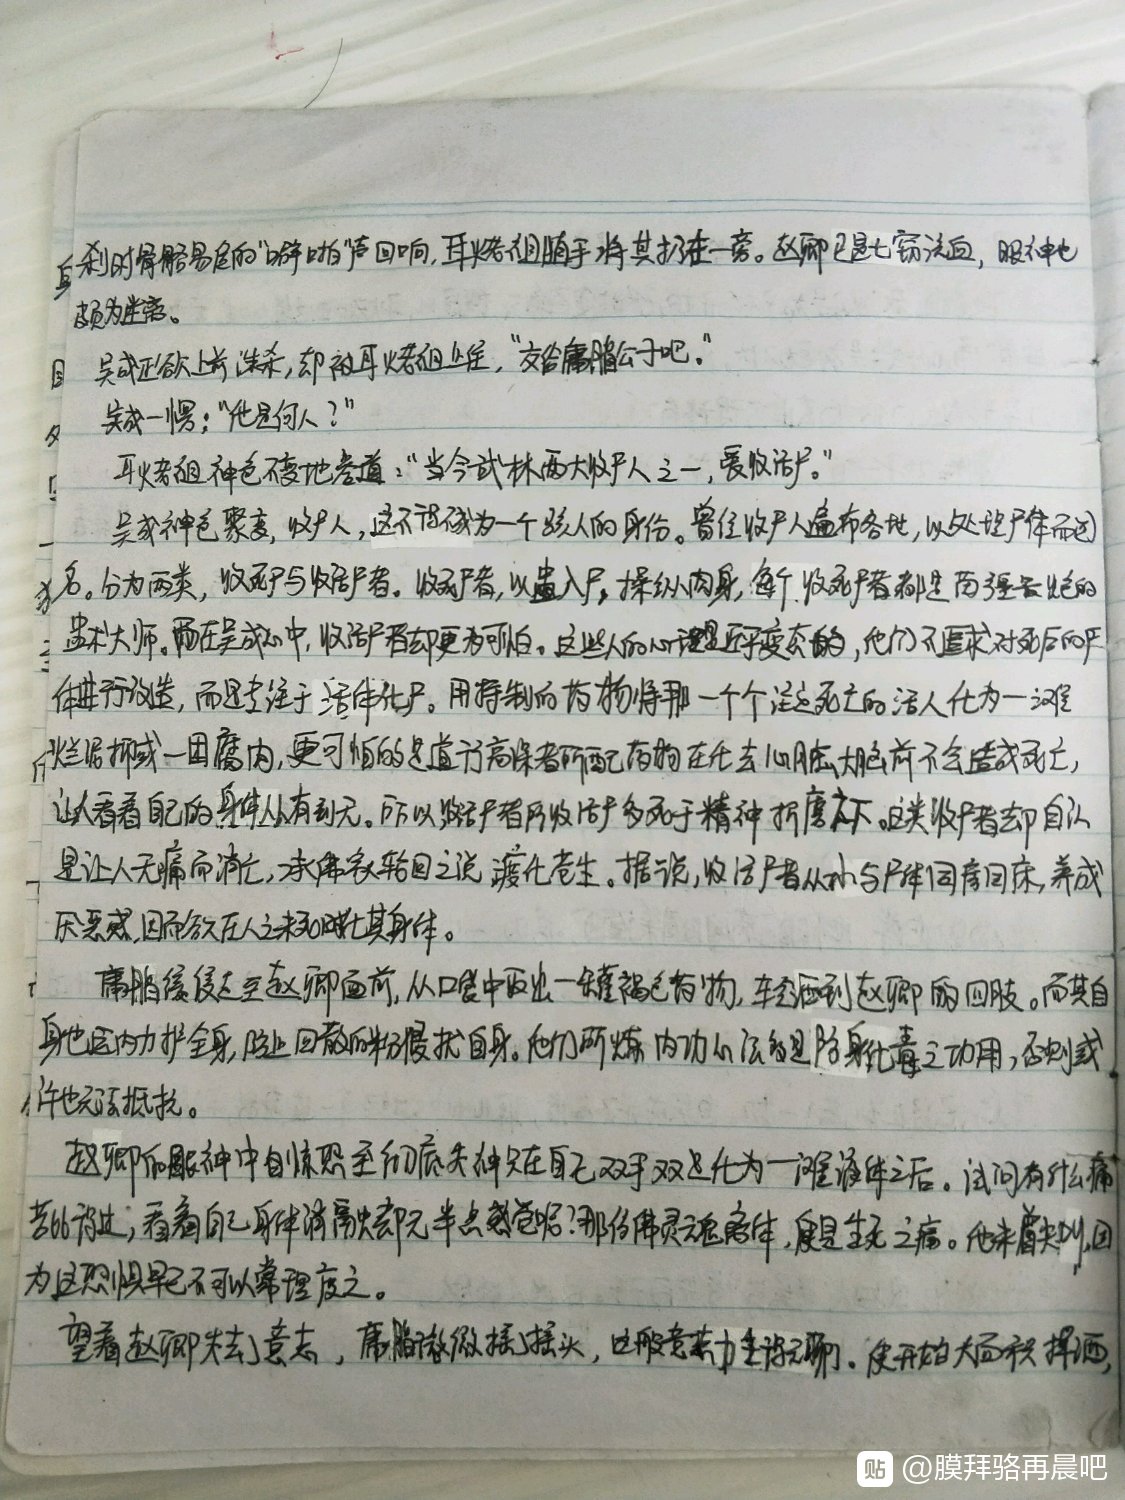 刹时骨骼易位的“噼啪”声回响,耳火老祖随手将其扔在一旁。赵卿已是七窍流血,眼神也
颇为迷离。
吴成正欲上前诛杀,却被耳火老祖止住,“交给腐脂公子吧。”
吴成一愣:“他是何人?”
耳火老祖神色不变地答道:“当今武林两大收尸人之一,爱收活尸。”
吴成神色聚变,收尸人,这不得不成为一个骇人的身份。曾经收尸人遍布各地,以处理尸体而闻
名。分为两类,收死尸与收活尸者。收死尸者,以蛊入尸,操纵肉身,每个收死尸者都是南疆最出色的
蛊术大师。而在吴成心中,收活尸者却更为可怕。这些人的心理是近乎变态的,他们不追求对死后的尸
体进行改造,而是专注于活体化尸。用特制的药物将那一个个注定死亡的活人化为一滩
烂泥抑或一团腐肉,更可怕的是道行高深者所配药物在化去心脏大脑前不会造成死亡,
让人看着自己的身体从有到无。所以收活尸者所收活尸多死于精神折磨之下。这类收尸者却自认
是让人无痛而消亡,承佛家轮回之说渡化苍生。据说,收活尸者从小与尸体同房同床,养成
厌恶感,因而欲在人之未死时化其身体。
腐脂缓缓走至赵卿面前,从口袋中取出一罐褐色药物,轻洒到赵卿的四肢。而其自
身也运内力护全身,防止四散的粉侵扰自身。他们所炼内功心法的是防身化毒之功用,否则或
许也无法抵抗。
赵卿的眼神中自惊恐至彻底失神只在自己双手双足化为一滩液体之后。试问有什么痛
苦比得过,看着自己身体消融却无半点感觉呢?那仿佛灵魂离体,便是生死之痛。他未曾尖叫,因
为这恐惧早已不可以常理度之。
望着赵卿失去了意志,腐脂微微摇了摇头,这般意志力全没无聊了。便开始大面积挥洒,
贴 @膜拜骆再晨吧